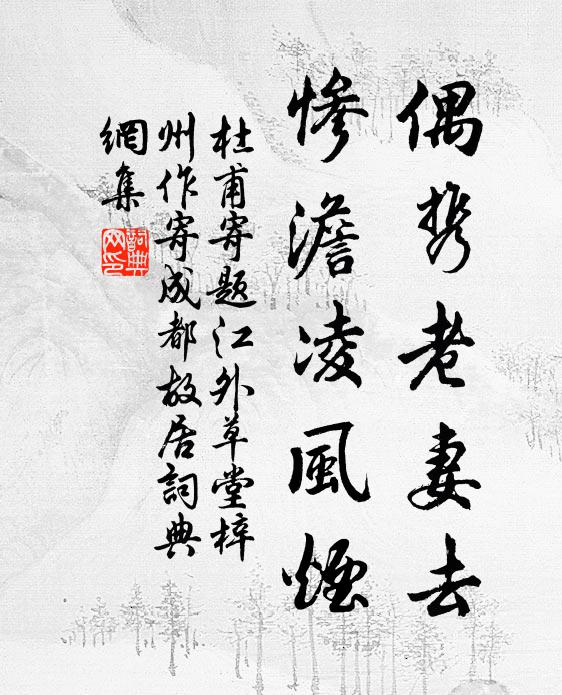 偶携老妻去
惨澹凌風煙
杜甫寄題江外草堂梓
州作寄成都故居詞典
網集
詞典
网印